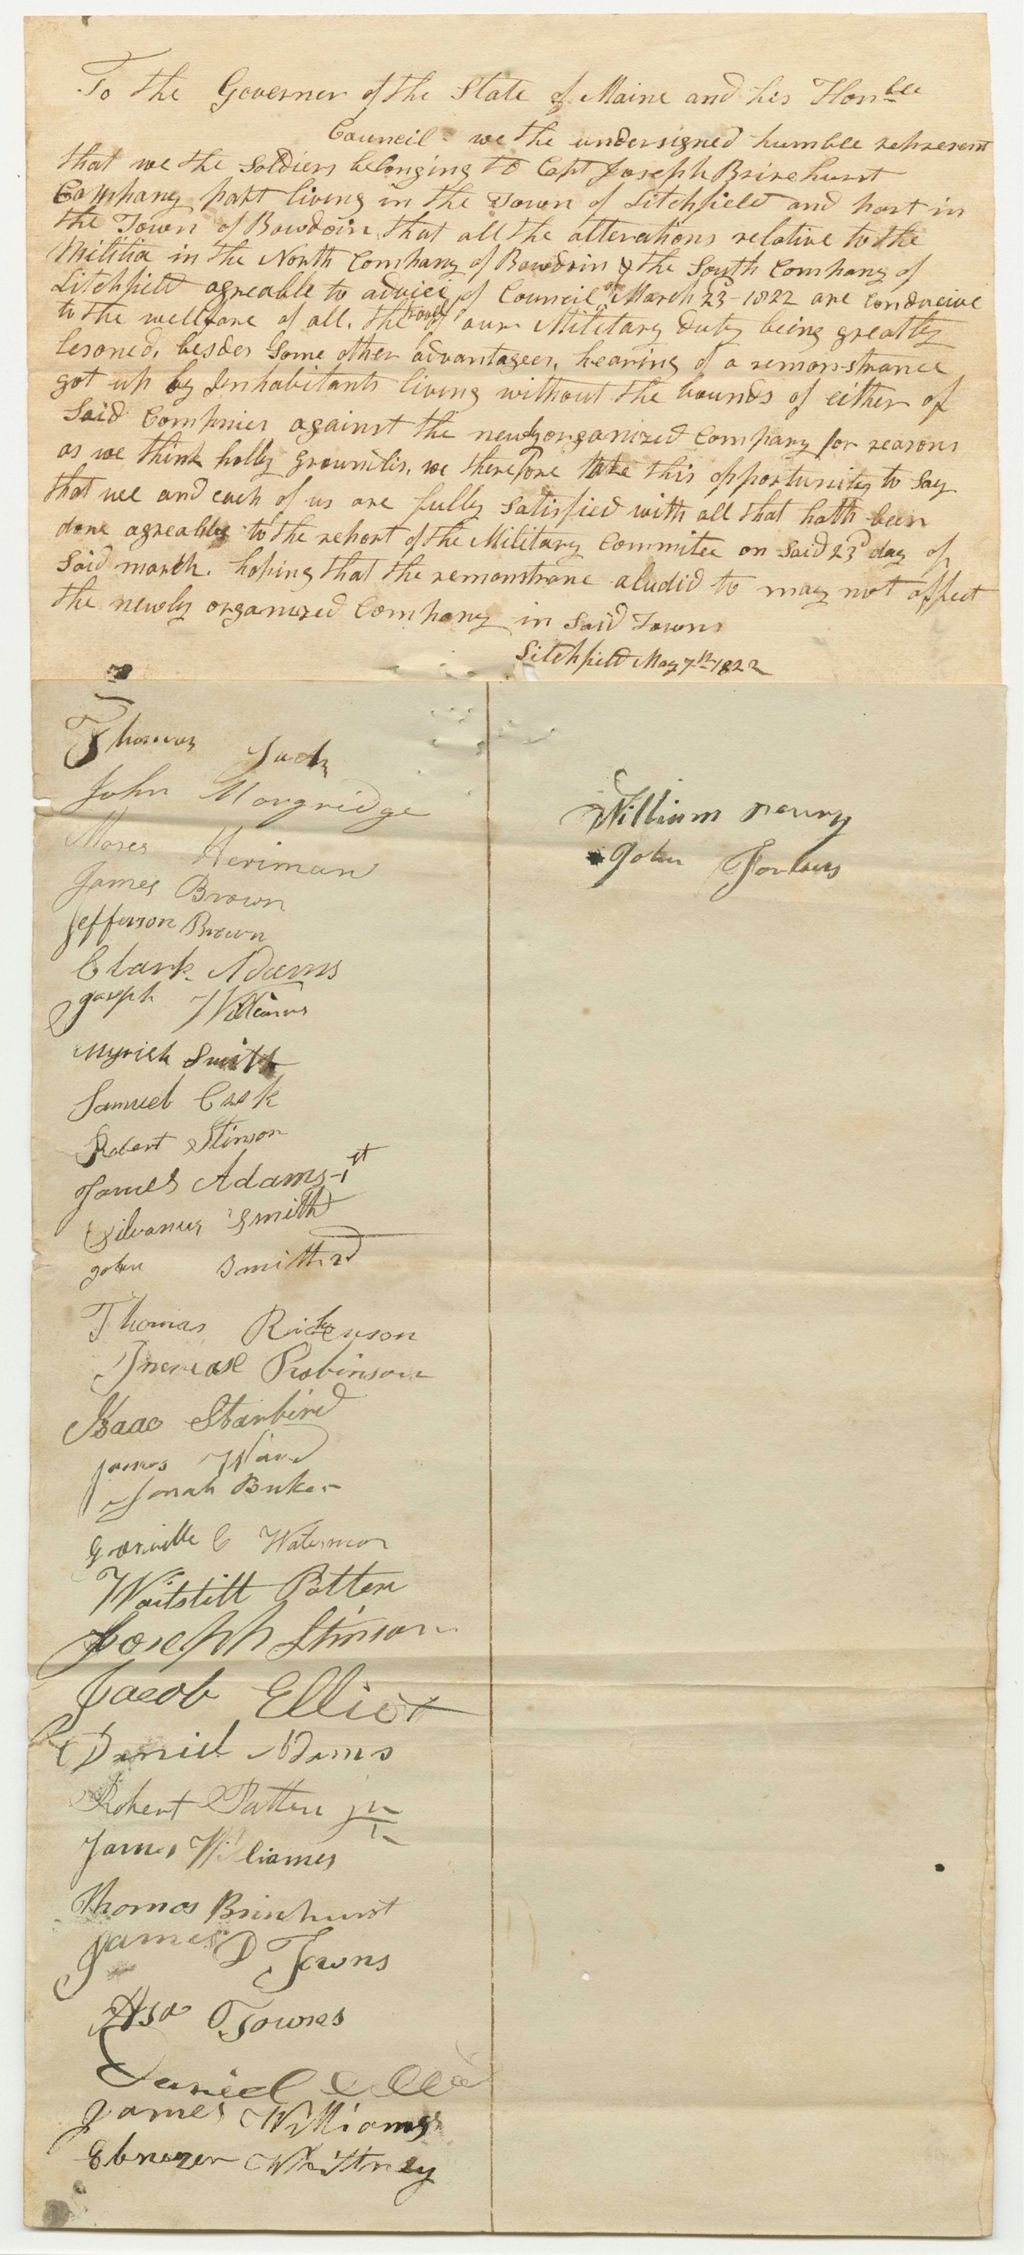 To the Governer of the State of Maine and his Honble
Council - we the undersigned humble represent
that we the Soldiers belonging to Capt Joseph Brinehurst
Company part living in the Town of Litchfield and part in
the Town of Bowdoin, that all the alterations relative to the
Militia in the North Company of Bowdoin & the South Company of
Litchfield agreable to advice of Council of March 23 - 1822 are conducive
to the wellfare of all, the of our Military duty being greatly
lesoned, besdes Some other advantages, hearing of a remonstrance
got up by Inhabitants living without the bounds of either of
Said Companies against the newly organized Company for reasons
as we think holly groundlis, we therefore take this opportunity to Say
that we and each of us are fully Satisfied with all that hath been
done agreable to the report of the Military Committee on Said 23d day of
Said march. hoping that the remonstrane aludid to may not affect
the newly organized Company in Said Towns
Litchfield May 7th 1822
Thomas Jack
John Morgridge
Moses Heriman
James Brown
Jefferson Brown
Clark Adams
Joseph Williams
Myrick Smith
Samuel Cook
Robert Stinson
James Adams 1st
Silvanus Smith
John Smith 2d
Thomas Rickerson
Increase Robinson
Isaac Starbird
James Ward
Jonah Buker
Granville C Waterman
Waitstill Potter
Joseph Stinson
Jacob Elliot
Daniel Adams
Robert Patten jr
James Williames
Thomas Brinhurst
James D Towns
Asa Townes
Daniel
James Williams
Ebnezer Whittney
William
John